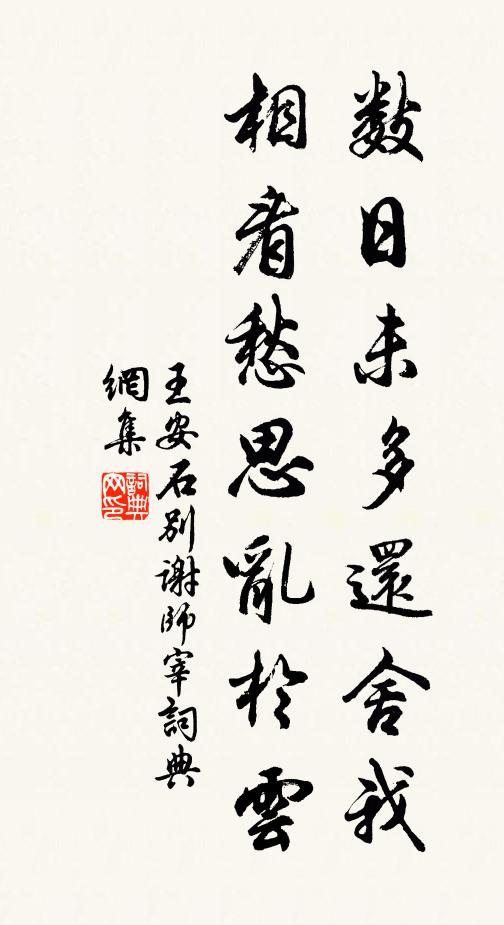 數日未多還舍我
相看愁思亂於雲
王安石別謝師宰詞典
網集
詞典
网印